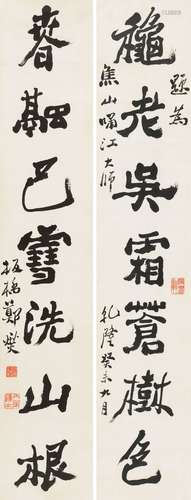 題為
龝老吳霜蒼樹色
焦山嘯江大師
乾隆癸未九月
春融巴雪洗山根
板橋鄭燮